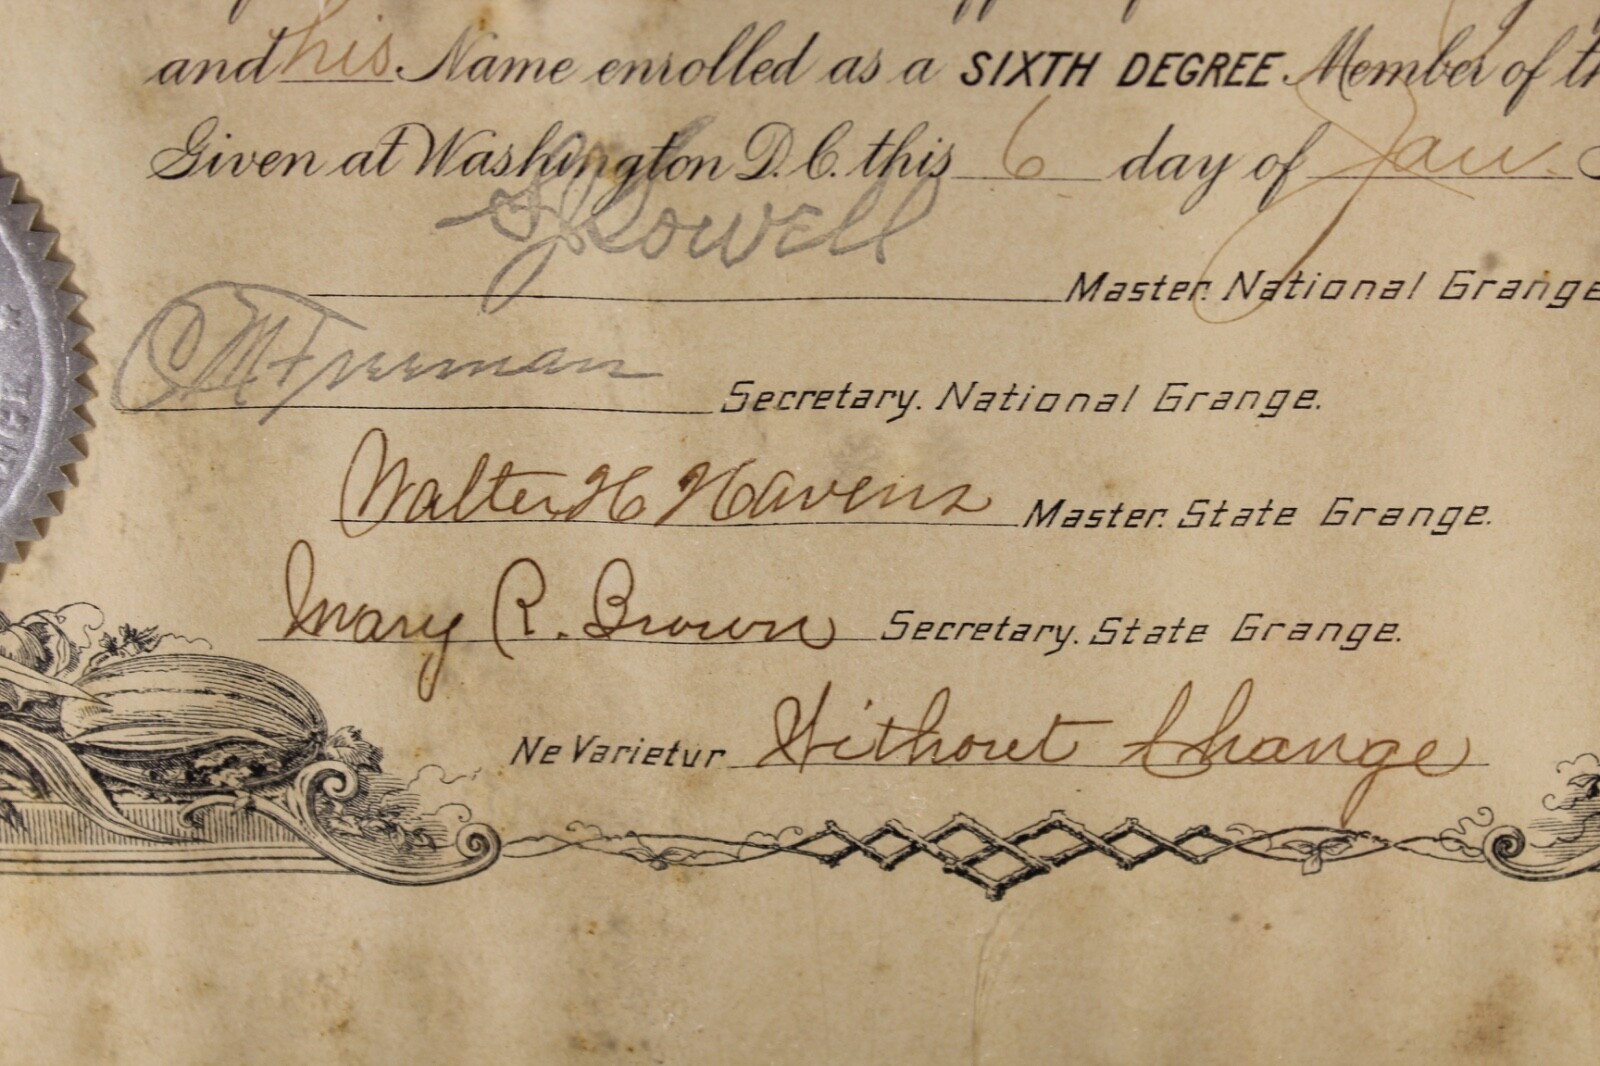 and his Name enrolled as a SIXTH DEGREE Member of
Given at Washington D.C. this 6 day of Jan.
S J Lowell
Master. National Grange
C M Freeman Secretary. National Grange.
Walter H Havens Master. State Grange.
Mary R. Brown Secretary. State Grange.
Ne Varietur Without Change